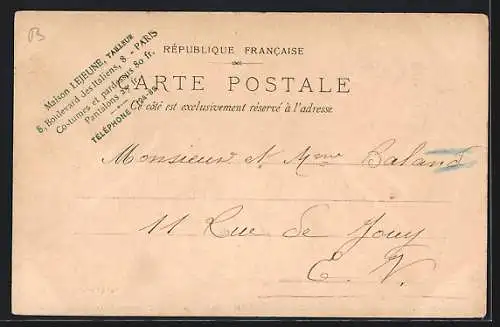 Maison LEJEUNE, TAILLEUR
8, Boulevard des Italiens, 8 - PARIS
Costumes et pardessus 80 fr.
Pantalons
TÉLÉPHONE
RÉPUBLIQUE FRANÇAISE
CARTE POSTALE
Ce côté est exclusivement réservé à l'adresse
Monsieur et Mme Baland
11 Rue de Jouy
E. V.